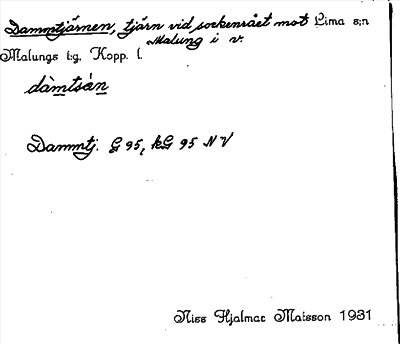 Dammtjärnen, tjärn vid sockenrået mot Lima s:n
Malung i v.
Malungs t:g, Kopp. l.
dàmtsán
Dammtj. G 95, kG 95 NV
Niss Hjalmar Matsson 1931